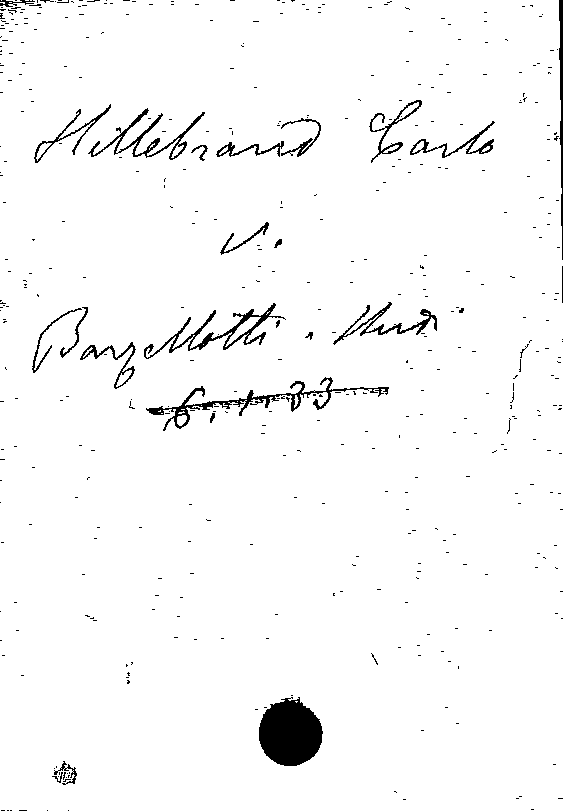 Hillebrand Carlo
v.
Barzellotti. Studi
6.1.33